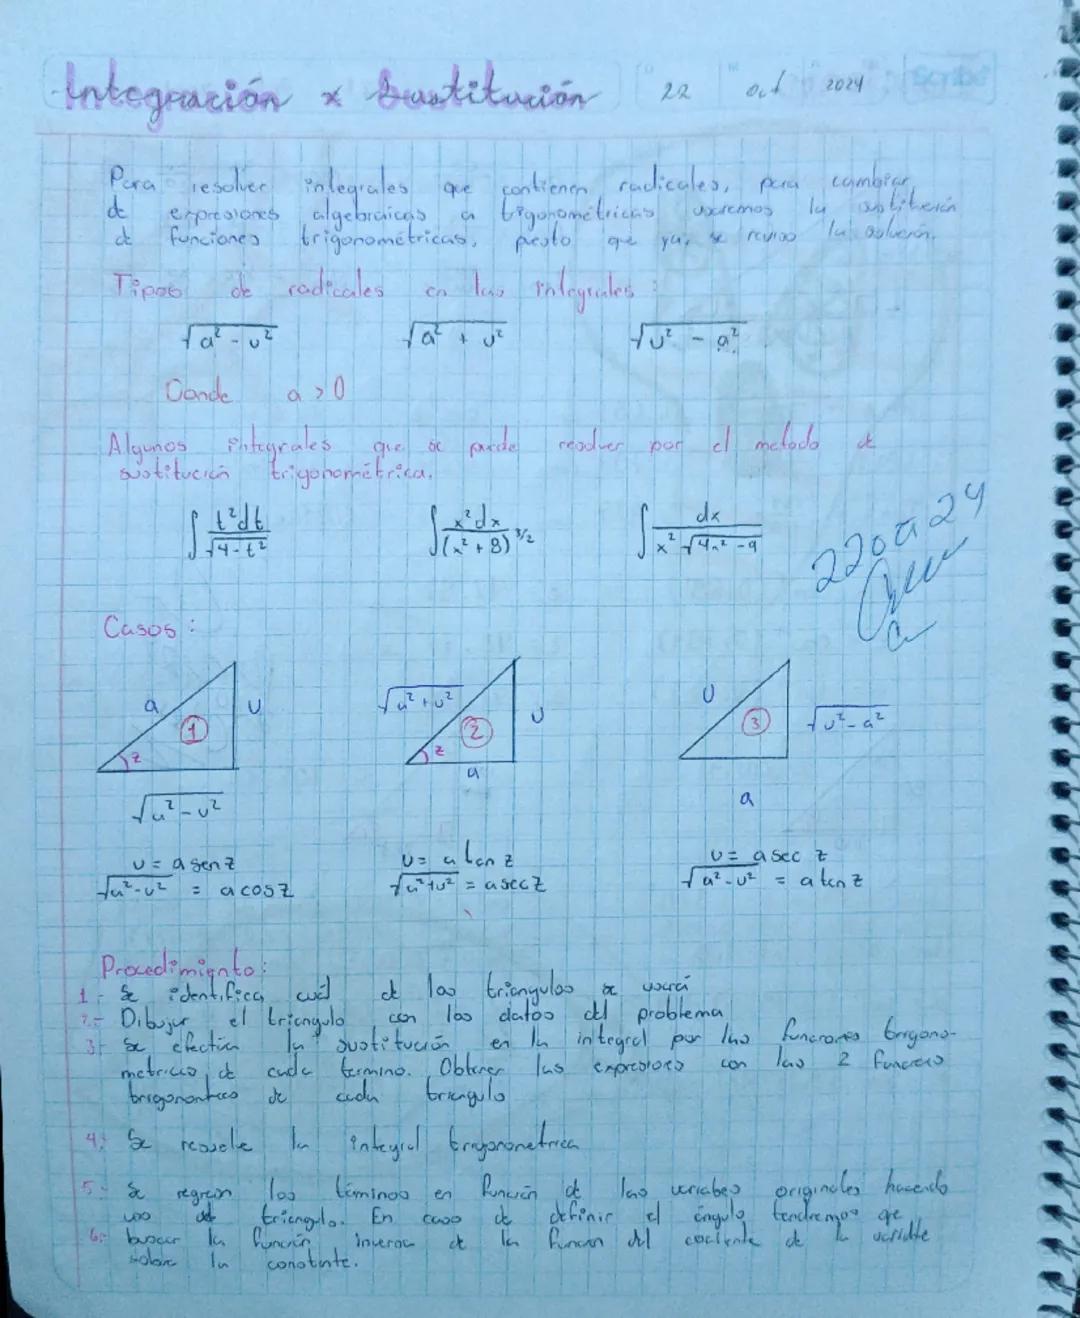 Integración x Sustitución 22 oct 2024
Para resolver integrales que contienen radicales, para cambiar
de expresiones algebraicas a trigonométricas usaremos la sustitución
de funciones trigonométricas, puesto que ya, se reviso la solución.
Tipos de radicales en las integrales :
√a² - u² √a² + u² √u² - a²
Donde a > 0
Algunos integrales que se puede resolver por el metodo de
sustitución trigonométrica.
∫ t²dt / √4-t² ∫ x²dx / (x² + 8)^3/2 ∫ dx / x² √4x² - 9
22 oct 24
Casos :
a 1 u z √a² + u² 2 u z a u 3 √u² - a²
√a² - u² a
u = a sen z u = a tan z u = a sec z
√a² - u² = a cos z √a² + u² = a sec z √a² - u² = a tan z
Procedimiento :
1.- Se identifica cuál de los triangulos se usará
2.- Dibujar el triangulo con los datos del problema
3.- Se efectúa la sustitución en la integral por las funciones trigono-
metricas de cada termino. Obtener las expresiones con las 2
de cada triangulo
4.- Se resuelve la integral trigonometrica
5.- Se regresan los términos en función de las variables originales haciendo
uso del triangulo. En caso de definir el ángulo tendremos que
6.- buscar la función inversa de la funcion del cociente de la variable
sobre la constante.